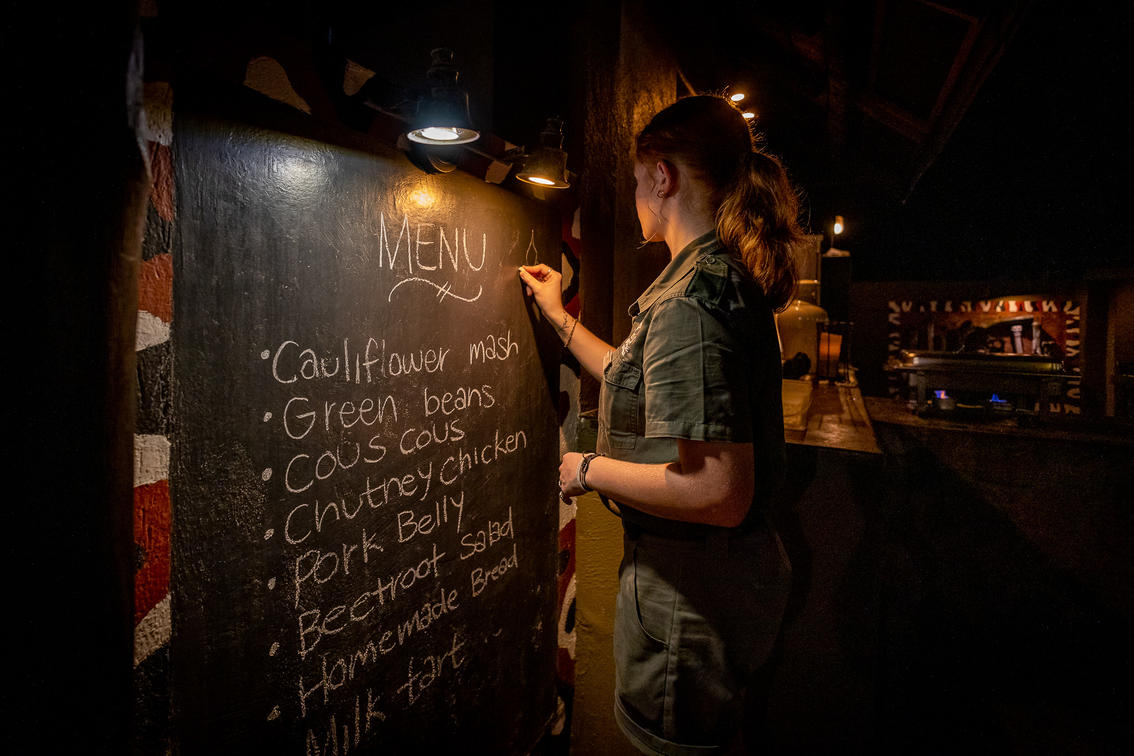 MENU
• Cauliflower mash
• Green beans
• Cous Cous
• Chutney Chicken
• Pork Belly
• Beetroot Salad
• Homemade Bread
• Milk tart